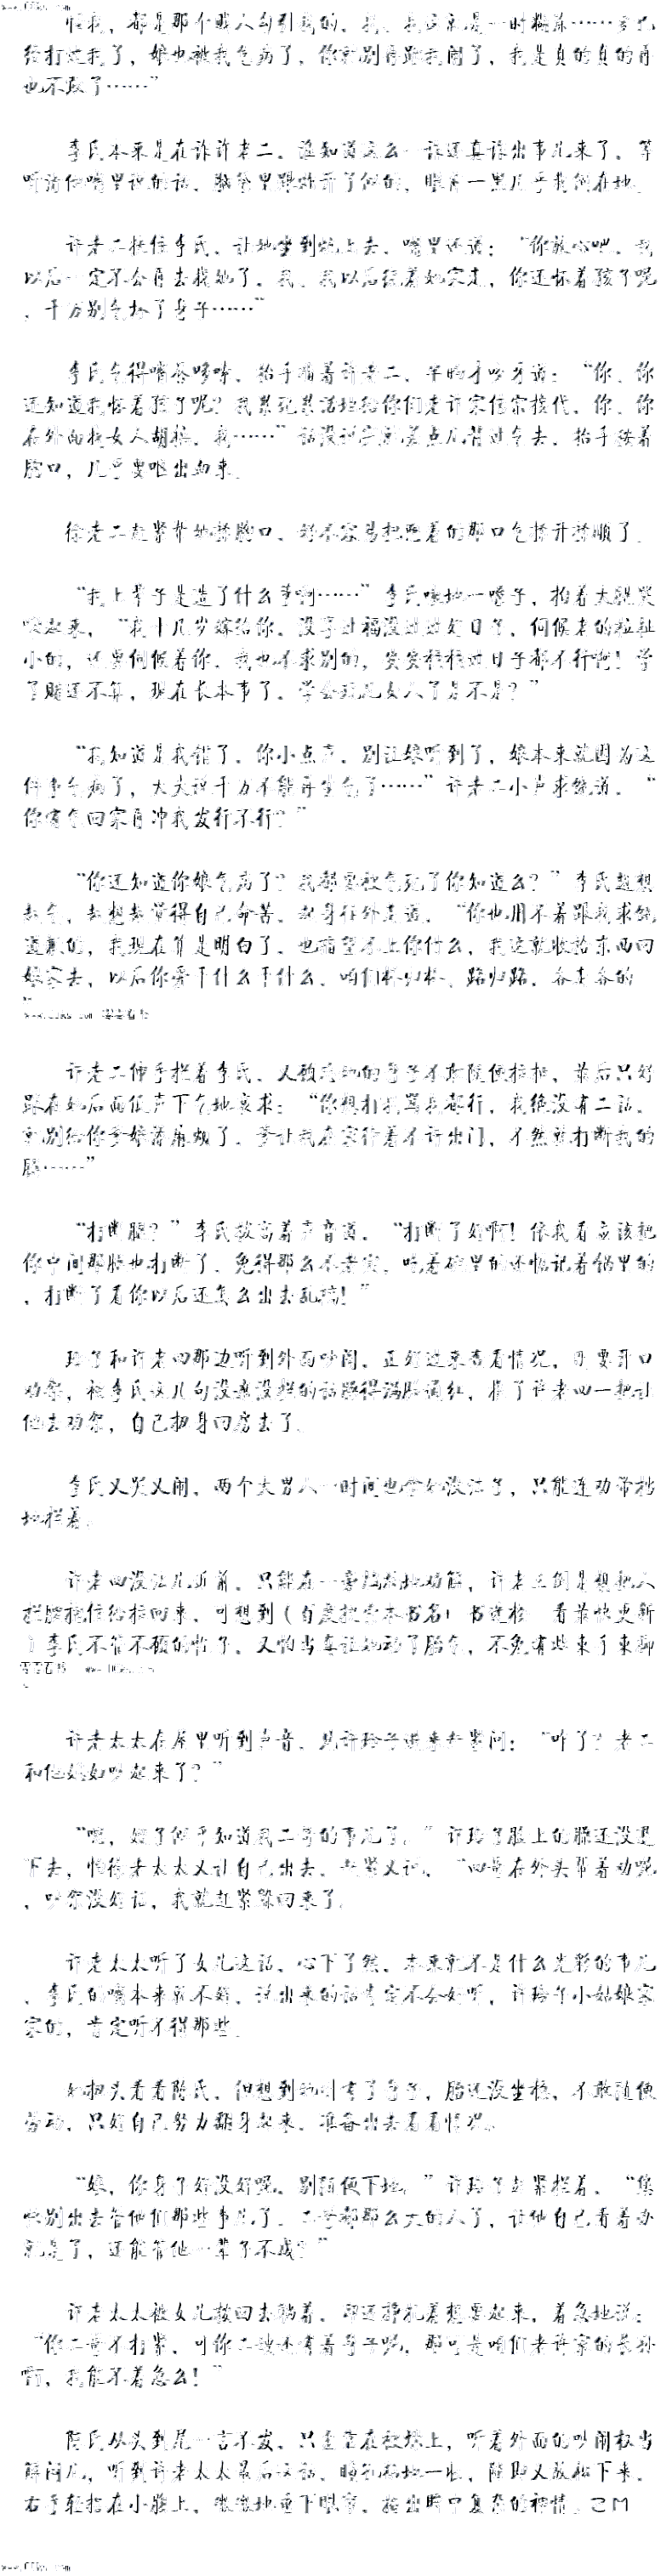 怪我，都是那个贱人勾引我的，我、我也就是一时糊涂……爹已
经打过我了，娘也被我气病了，你就别再跟我闹了，我是真的真的再
也不敢了……”
李氏本来是在诈许老二，谁知道这么一诈还真诈出事儿来了，等
听清他嘴里说的话，脑袋里跟炸开了似的，眼前一黑几乎栽倒在地。
许老二扶住李氏，让她坐到炕上去，嘴里还道：“你放心吧，我
以后一定不会再去找她了，我、我以后绕着她家走，你还怀着孩子呢
，千万别气坏了身子……”
李氏气得嘴唇哆嗦，抬手指着许老二，半晌才咬牙道：“你、你
还知道我怀着孩子呢？我累死累活地给你们老许家传宗接代，你、你
在外面找女人胡搞，我……”话没说完就差点儿背过气去，抬手按着
胸口，几乎要呕出血来。
徐老二赶紧帮她揉胸口，好不容易把憋着的那口气揉开揉顺了。
“我上辈子是造了什么孽啊……”李氏嚎地一嗓子，拍着大腿哭
嚎起来，“我十几岁嫁给你，没享过福没过过好日子，伺候老的拉扯
小的，还要伺候着你，我也不求别的，安安稳稳过日子都不行啊！学
了赌还不算，现在长本事了，学会玩儿女人了是不是？”
“我知道是我错了，你小点声，别让娘听到了，娘本来就因为这
件事气病了，大夫说千万不能再生气了……”许老二小声求饶道，“
你有气回家再冲我发行不行？”
“你还知道你娘气病了？我都要被气死了你知道么？”李氏越想
越气，越想越觉得自己命苦，起身往外走道，“你也用不着跟我求饶
道歉的，我现在算是明白了，也指望不上你什么，我这就收拾东西回
娘家去，以后你爱干什么干什么，咱们桥归桥、路归路，各走各的
”
许老二伸手拦着李氏，又顾忌她的身子不敢随便拉扯，最后只好
跟在她后面低声下气地哀求：“你想打我骂我都行，我绝没有二话，
就别给你爹娘添麻烦了，爹让我在家待着不许出门，不然就打断我的
腿……”
“打断腿？”李氏拔高着声音道，“打断了好啊！依我看应该把
你中间那腿也打断了，免得那么不老实，吃着碗里的还惦记着锅里的
，打断了看你以后还怎么出去乱搞！”
玲子和许老四那边听到外面吵闹，正好过来查看情况，刚要开口
劝架，被李氏这几句没羞没臊的话臊得满脸通红，推了许老四一把让
他去劝架，自己扭身回房去了。
李氏又哭又闹，两个大男人一时间也拿她没法子，只能连劝带挡
地拦着。
许老四没法儿近前，只能在一旁尴尬地劝解，许老二倒是想把人
拦腰抱住给拉回来，可想到（百度搜索本书名+书连栈 看最快更新
）李氏不管不顾的性子，又怕当真让她动了胎气，不免有些束手束脚
。
许老太太在屋里听到声音，见许玲子进来赶紧问：“咋了？老二
和他媳妇吵起来了？”
“嗯，嫂子似乎知道我二哥的事儿了。”许玲子脸上的臊还没退
下去，怕徐老太太又让自己出去，赶紧又说，“四哥在外头帮着劝呢
，吵架没好话，我就赶紧躲回来了。
许老太太听了女儿这话，心下了然，本来就不是什么光彩的事儿
，李氏的嘴本来就不好，说出来的话肯定不会好听，许玲子小姑娘家
家的，肯定听不得那些。
她扭头看看陈氏，但想到她刚有了身子，胎还没坐稳，不敢随便
劳动，只好自己努力翻身起来，准备出去看看情况。
“娘，你身子好没好呢，别随便下地。”许玲子赶紧拦着，“您
快别出去管他们那些事儿了，二哥都那么大的人了，让他自己看着办
就是了，还能管他一辈子不成？”
许老太太被女儿按回去躺着，却还挣扎着想要起来，着急地说：
“你二哥不打紧，可你二嫂还怀着身子呢，那可是咱们老许家的长孙
啊，我能不着急么！”
陈氏从头到尾一言不发，只歪靠在被垛上，听着外面的吵闹权当
解闷儿，听到许老太太最后这话，瞳孔猛地一收，随即又放松下来，
右手轻抬在小腹上，微微地垂下眼帘，掩出眸中复杂的神情。ZM